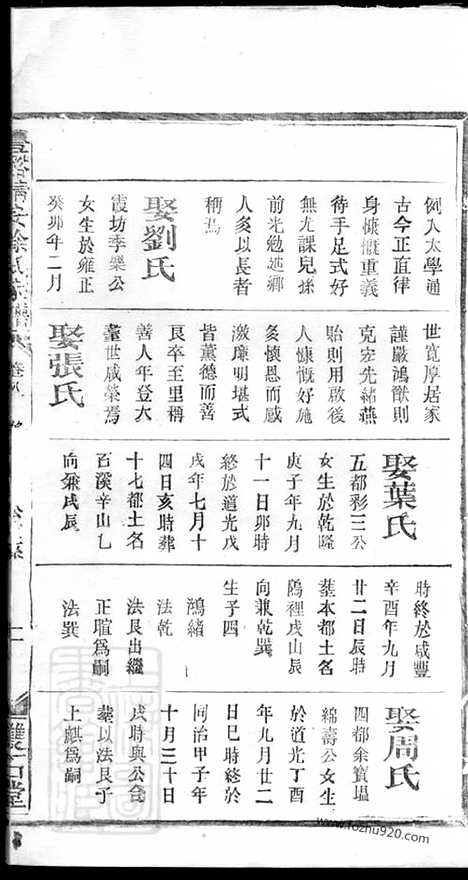 例入太學通
古今正直律
身慷慨重義
待手足式好
無尤課兒孫
前光勉進鄉
人多以長者
稱焉
娶劉氏
霞坊季樂公
女生於雍正
癸卯年二月
世寬厚居家
謹嚴鴻猷則
克宏先緒燕
貽則用啟後
人慷慨好施
多懷恩而感
激廉明堪式
皆薰德而善
良卒至里稱
善人年登大
耋世咸榮焉
娶張氏
娶葉氏
五都彩三公
女生於乾隆
庚子年九月
十一日卯時
終於道光戊
戌年七月十
四日亥時葬
十七都土名
西溪辛山乙
向兼戌辰
時終於咸豐
辛酉年九月
廿二日辰時
葬本都土名
隖裡戌山辰
向兼乾巽
生子四
鴻緒
法乾
法艮出繼
正暄爲嗣
法巽
娶周氏
四都余寶塭
綿壽公女生
於道光丁酉
年九月廿二
日巳時終於
同治甲子年
十月三十日
戌時與公合
葬以法艮子
上麒爲嗣
徐氏宗譜
卷八
雙石堂
www.fozhu920.com